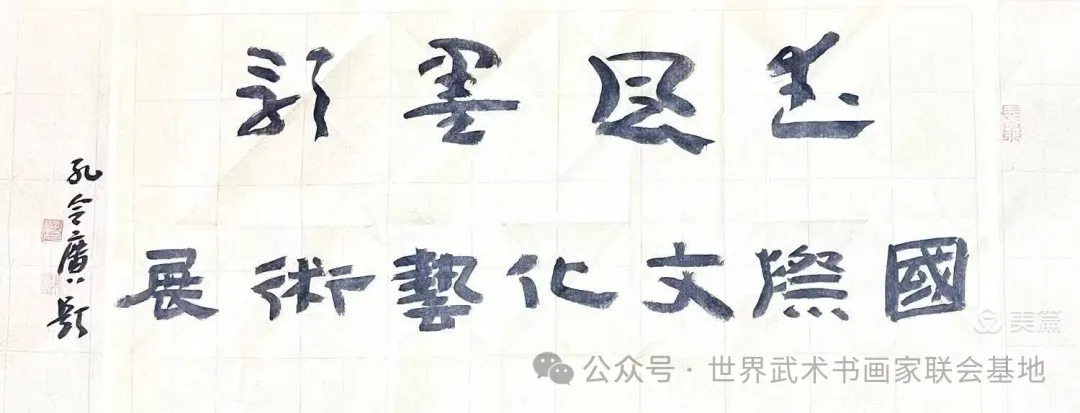 墨
國際文化藝術展
孔令廣題
美篇
公众号 · 世界武术书画家联会基地